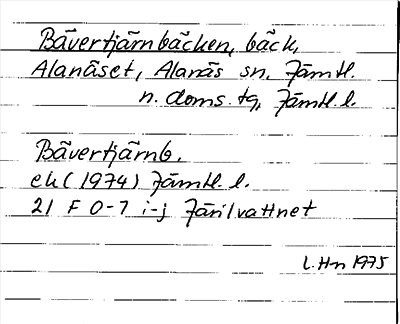 Bävertjärnbäcken, bäck,
Alanäset, Alanäs sn, Jämtl.
n. doms. tg, Jämtl. l.
Bävertjärnb.
ek (1974) Jämtl. l.
21 F 0-1 i-j Järilvattnet
L. Hn 1975